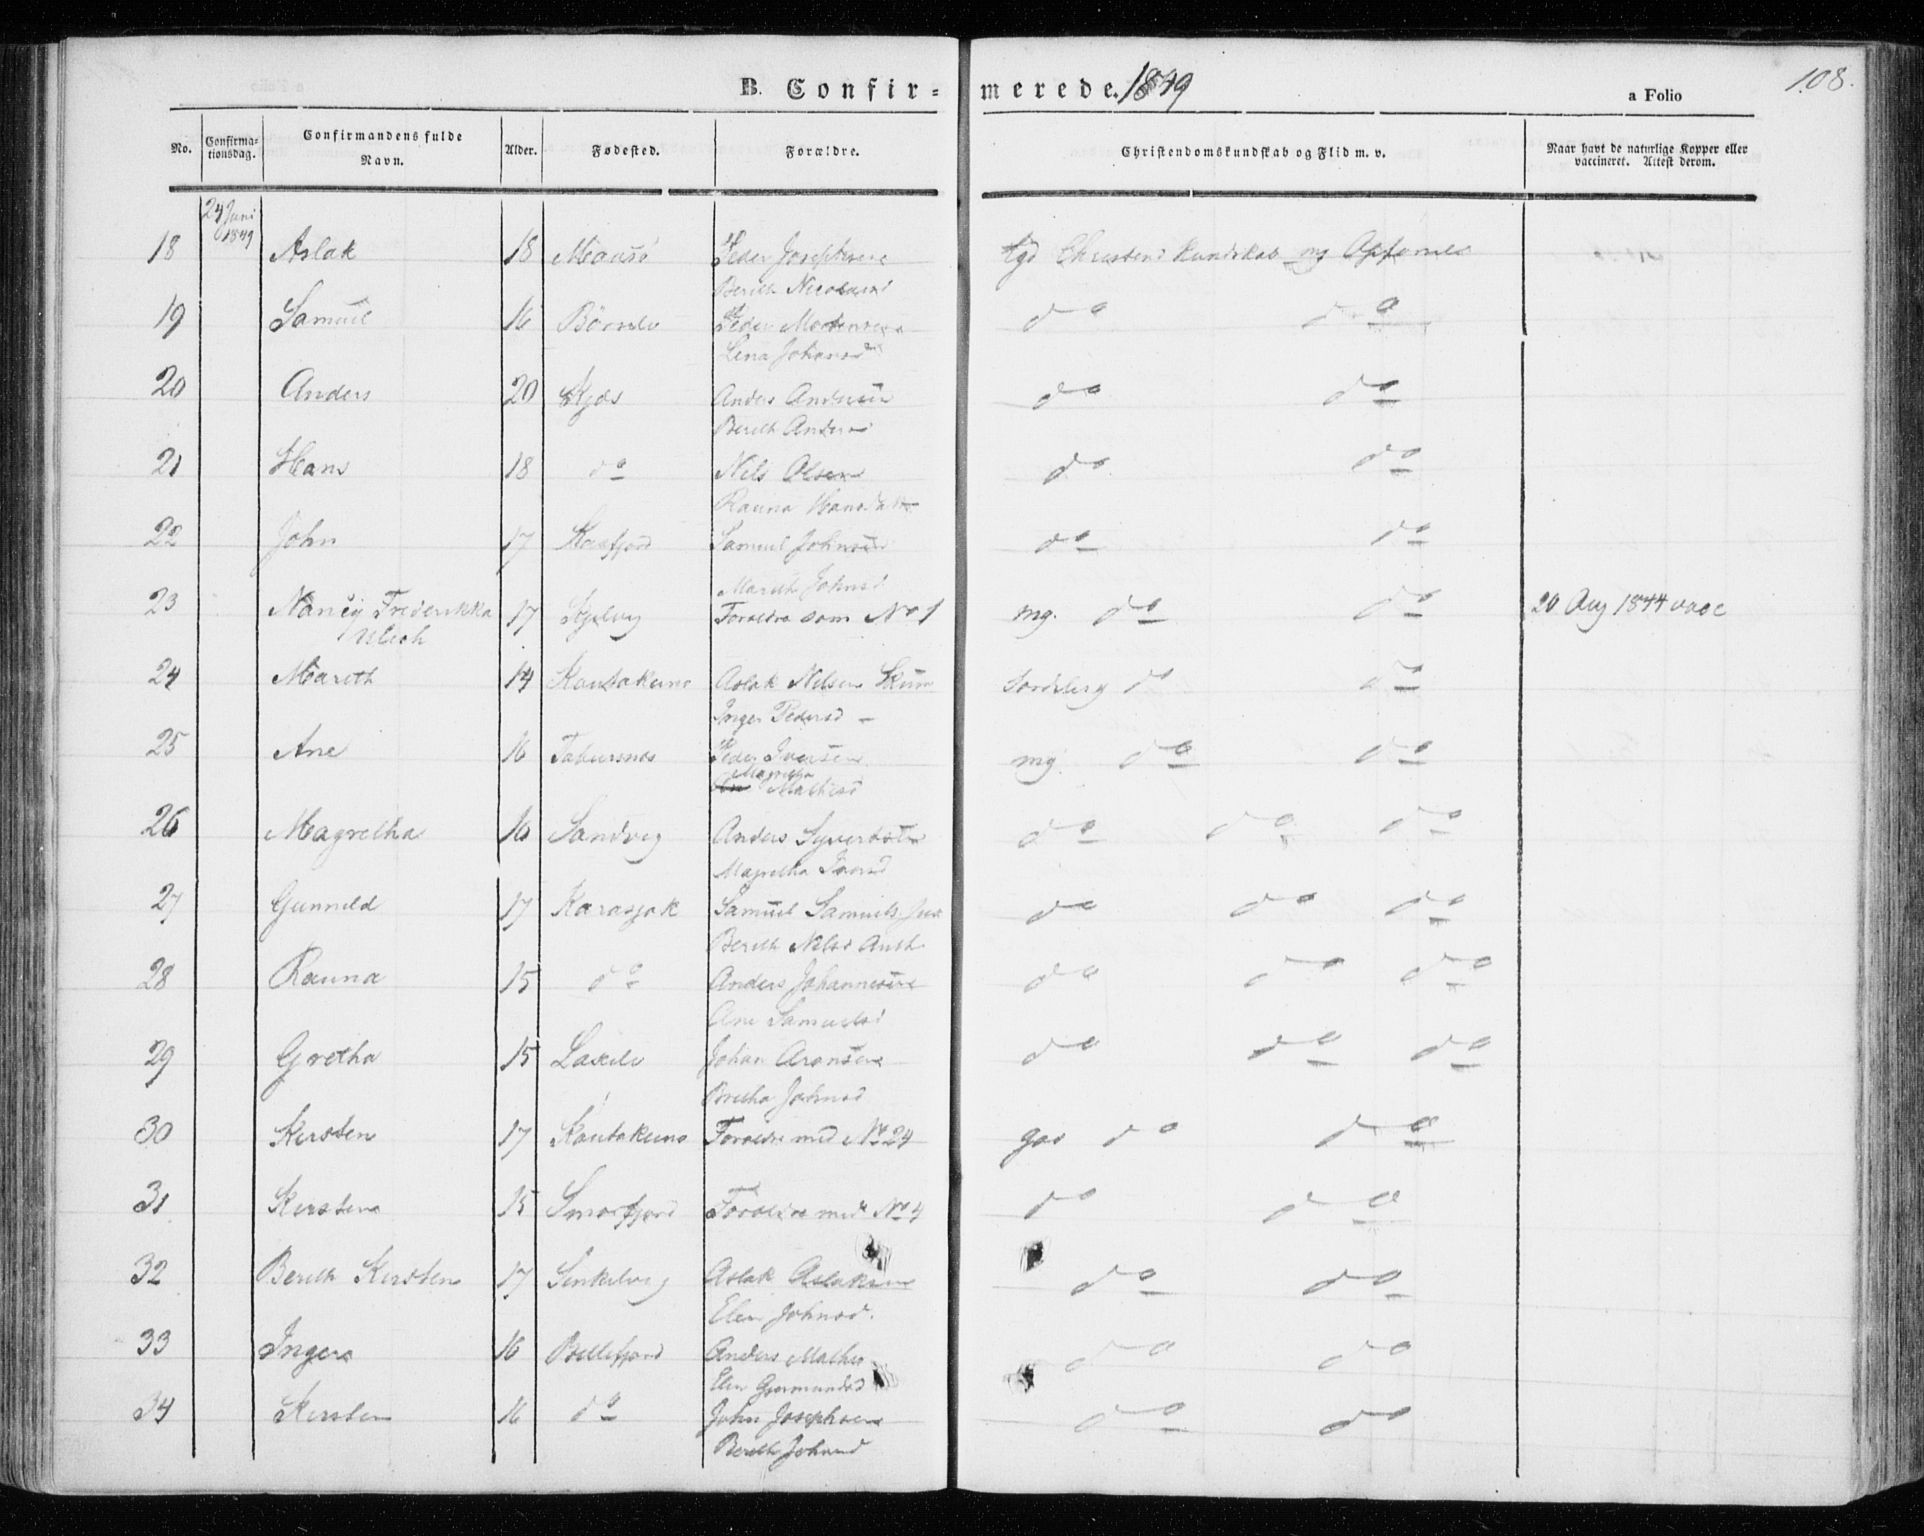 B. Confir- merede. 1849
a Folio
108.
No. Confirma-tionsdag. Confirmandens fulde Navn. Alder. Fødested. Forældre. Christendomskundskab og Flid m. v. Naar havt de naturlige Kopper eller vaccineret. Attest derom.
24 Juni 1849
18 Aslak 18 Maasö Peder Josephsen tgd Christend Kundskab og Opførsel
Berith
19 Samuel 16 Börselv Peder Mortensen do do
Lena Johansd
20 Anders 20 Kjæs Anders Andersen do do
Berith Andersd
21 Hans 18 do Nils Olsen do do
Rauna Hansdatt
22 John 17 Kaafjord Samuel Johnsen do do
Marith Johnsd
23 Nancÿ Frederikka 17 Kjelvig Forældre som No 1 mg. do do 20 Aug 1844 vacc
Ulich
24 Mareth 14 Kautokeino Aslak Nilsen Skum do do
Inger Pedersd -
25 Ane 16 Peder Iversen mg do do
Magretha Mathisd
26 Magretha 16 Sandvig Anders Syvertsen do do do
Magretha
27 Gunneld 17 Karasjok Samuel Samuels do do do
Berith Nilsd
28 Rauna 15 do Anders Johannesen do do do
Ane Samuelsd
29 Gretha 15 Laxelv Johan Aronsen do do do
Bretha Johnsd
30 Kirsten 17 Kautokeino Forældre med No 24 god do do
31 Kirsten 15 Smorfjord Forældre med No 4 do do
32 Berith Kirsten 17 Aslak Aslaksen do do
Elen Johnsd.
33 Inger 16 Billefjord Anders Mathis do do
Elen Gjermundsd
34 Kirsten 16 do John Josephsen do do
Berith Johnsd